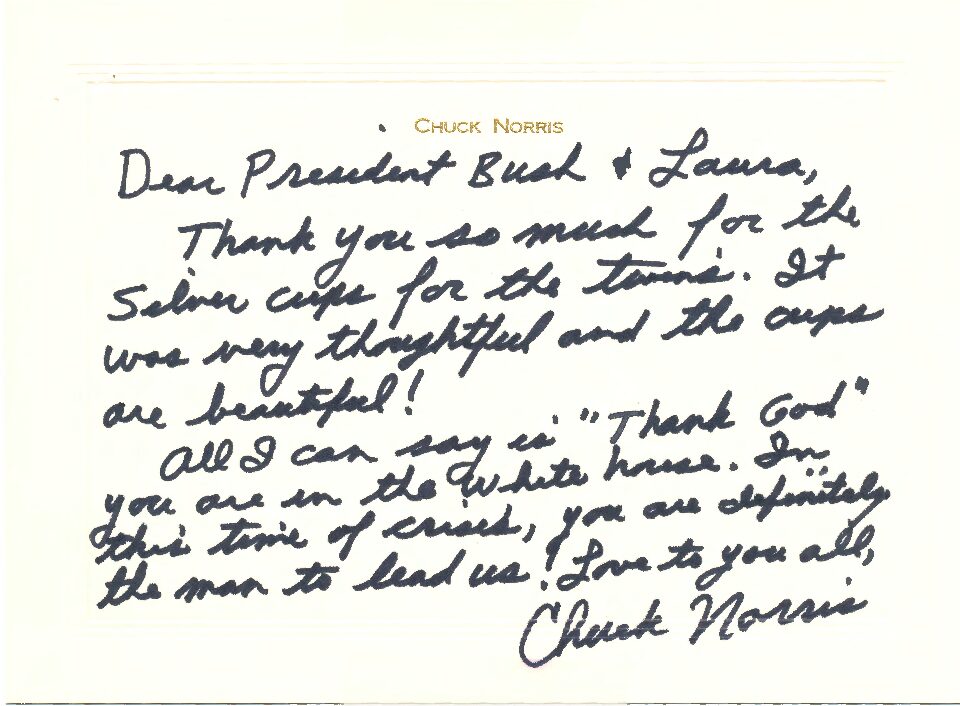 CHUCK NORRIS
Dear President Bush & Laura,
Thank you so much for the
Silver cups for the twins. It
was very thoughtful and the cups
are beautiful!
All I can say is "Thank God"
you are in the White house. In
this time of crisis, you are definitely
the man to lead us! Love to you all,
Chuck Norris